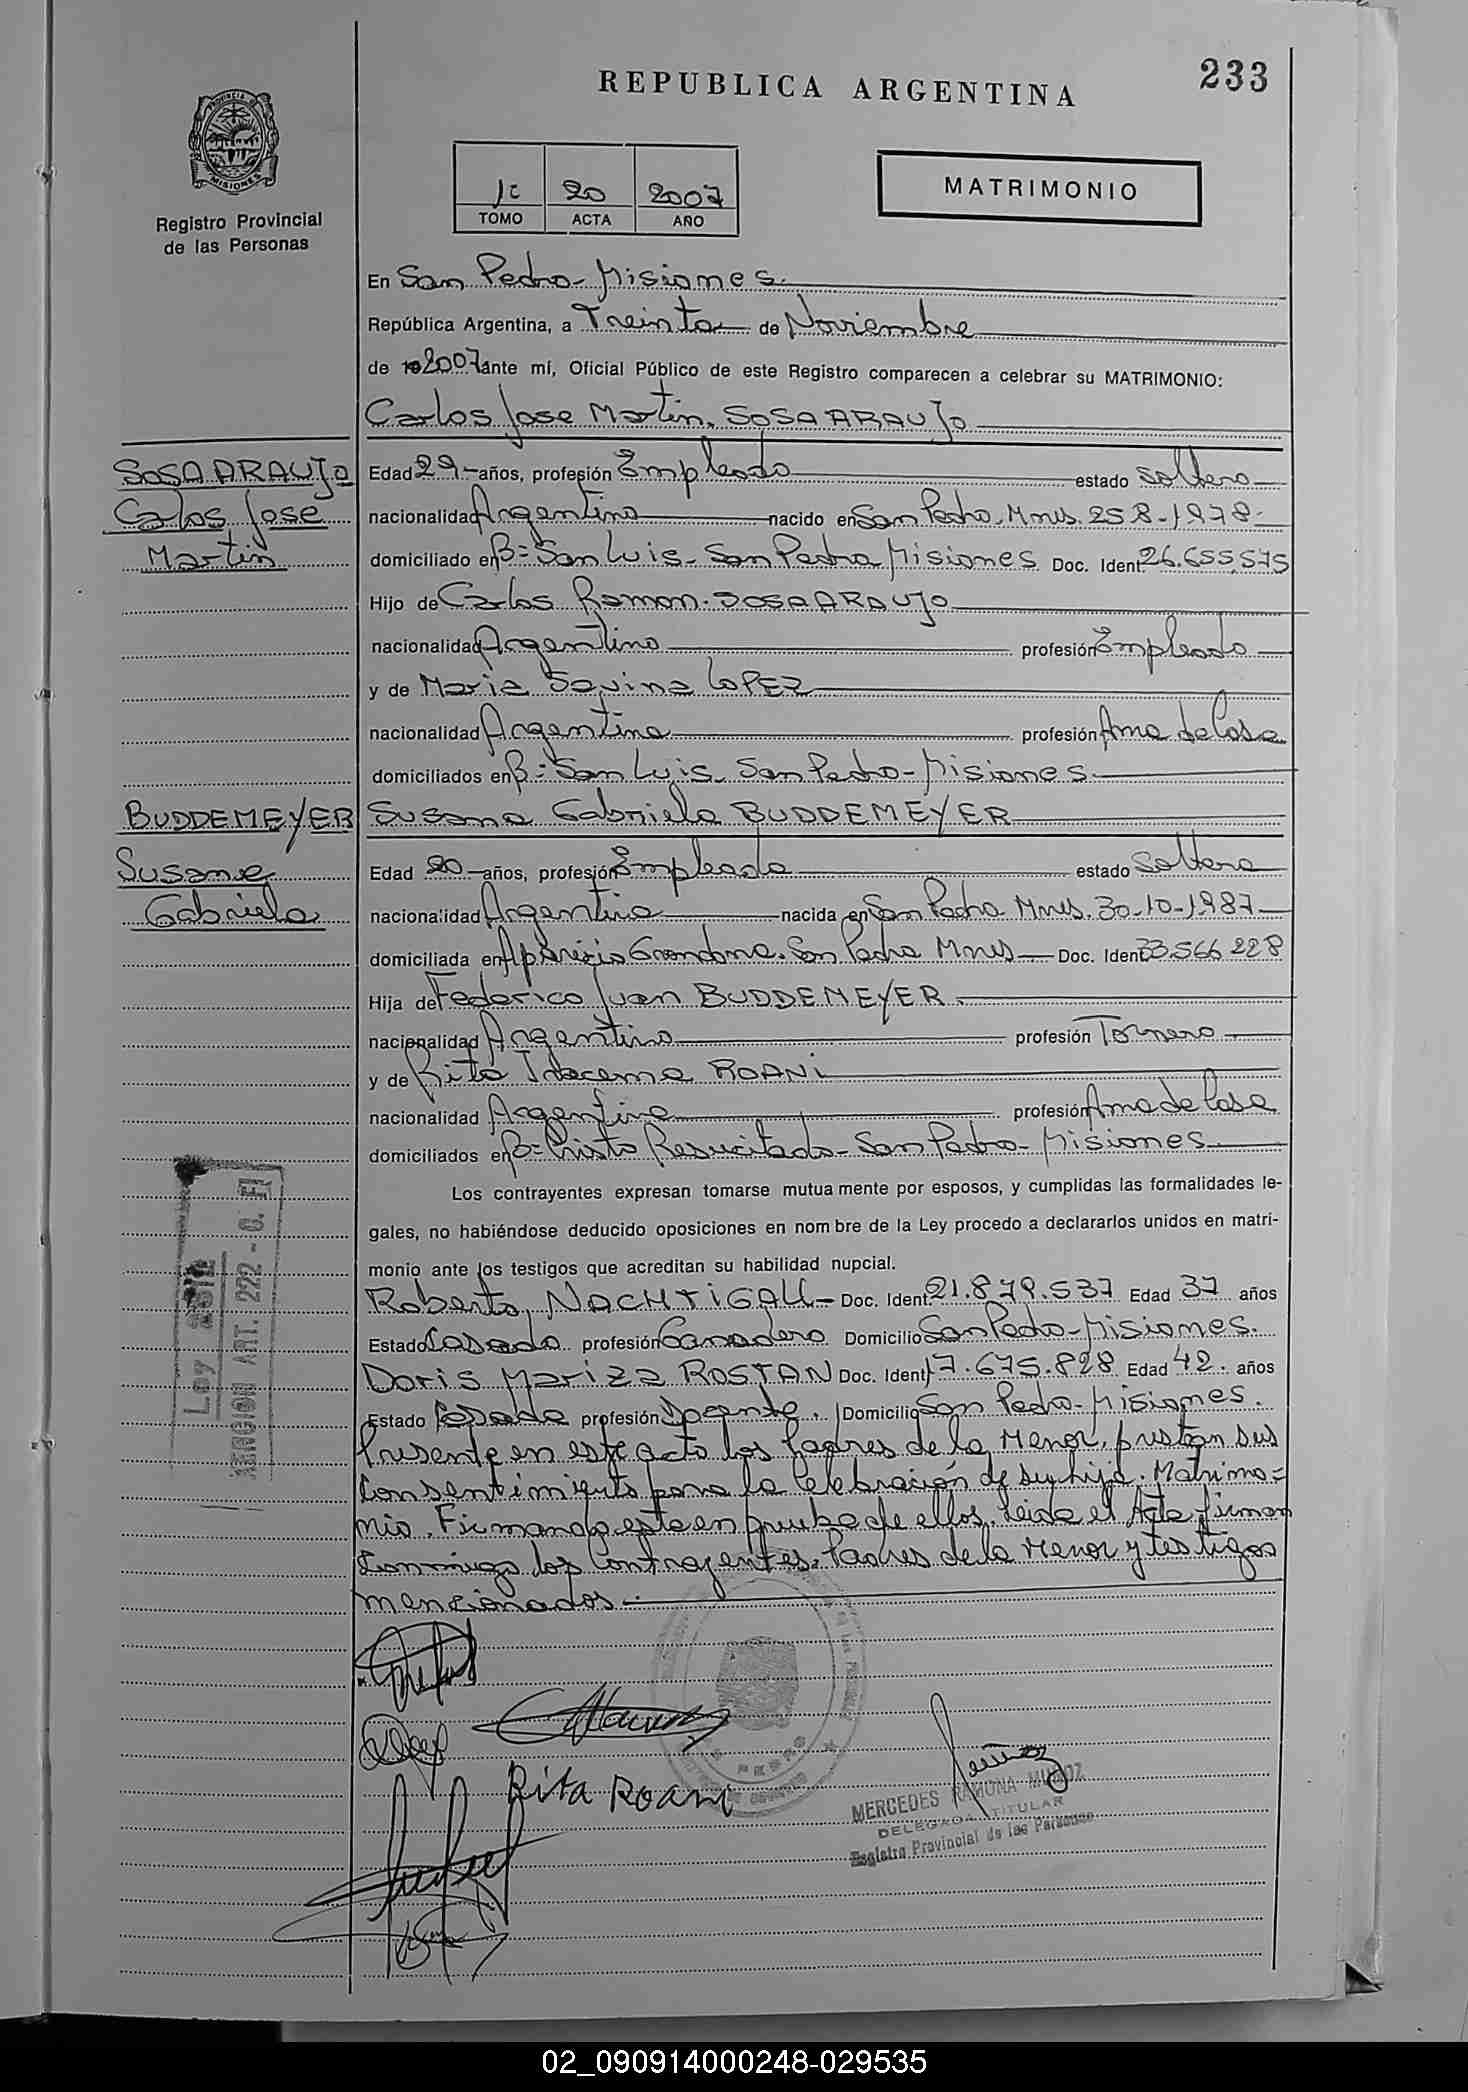 REPUBLICA ARGENTINA
233
PROVINCIA DE
MISIONES
Registro Provincial
de las Personas
1c 20 2007
TOMO ACTA AÑO
MATRIMONIO
En San Pedro - Misiones.
República Argentina, a Treinta de Noviembre
de 2007 ante mí, Oficial Público de este Registro comparecen a celebrar su MATRIMONIO:
Carlos Jose Martin. SOSA ARAUJO
SOSA ARAUJO
Carlos Jose
Martin
Edad 29 - años, profesión Empleado estado soltero
nacionalidad Argentino nacido en San Pedro. Mnes. 25 8-1978-
domiciliado en Bº San Luis - San Pedro Misiones Doc. Ident. 26.655.575
Hijo de Carlos Ramon. SOSA ARAUJO
nacionalidad Argentino profesión Empleado
y de Maria Savina LOPEZ
nacionalidad Argentina profesión Ama de Casa
domiciliados en Bº San Luis. San Pedro - Misiones
BUDDEMEYER
Susana
Gabriela
Susana Gabriela BUDDEMEYER
Edad 20 - años, profesión Empleada estado Soltera
nacionalidad Argentina nacida en San Pedro Mnes. 30-10-1987-
domiciliada en Aparicio Grondona. San Pedro Mnes - Doc. Ident. 33.566 228
Hija de Federico Juan BUDDEMEYER -
nacionalidad Argentino profesión Tornero
y de Rita Iracema ROANI
nacionalidad Argentina profesión Ama de Casa
domiciliados en Bº Cristo Resucitado - San Pedro - Misiones
Los contrayentes expresan tomarse mutua mente por esposos, y cumplidas las formalidades le-
gales, no habiéndose deducido oposiciones en nom bre de la Ley procedo a declararlos unidos en matri-
monio ante los testigos que acreditan su habilidad nupcial.
Roberto, NACHTIGALL - Doc. Ident. 21.879.537 Edad 37 años
Estado Casado profesión Ganadero Domicilio San Pedro - Misiones.
Doris Mariza ROSTAN Doc. Ident. 17.675.828 Edad 42. años
Estado Casada profesión Docente. Domicilio San Pedro - Misiones.
Presente en este acto los Padres de la Menor, prestan sus
Consentimiento para la Celebración de su hija. Matrimo=
nio. Firmando esta en prueba de ellos. Leida el Acta, firman
Conmigo los Contrayentes. Padres de la Menor y testigos
mencionados -
Ley
ART. 222 -
Rita Roani
MERCEDES RAMONA MUÑOZ
DELEGADA TITULAR
Registro Provincial de las Personas
02_090914000248-029535